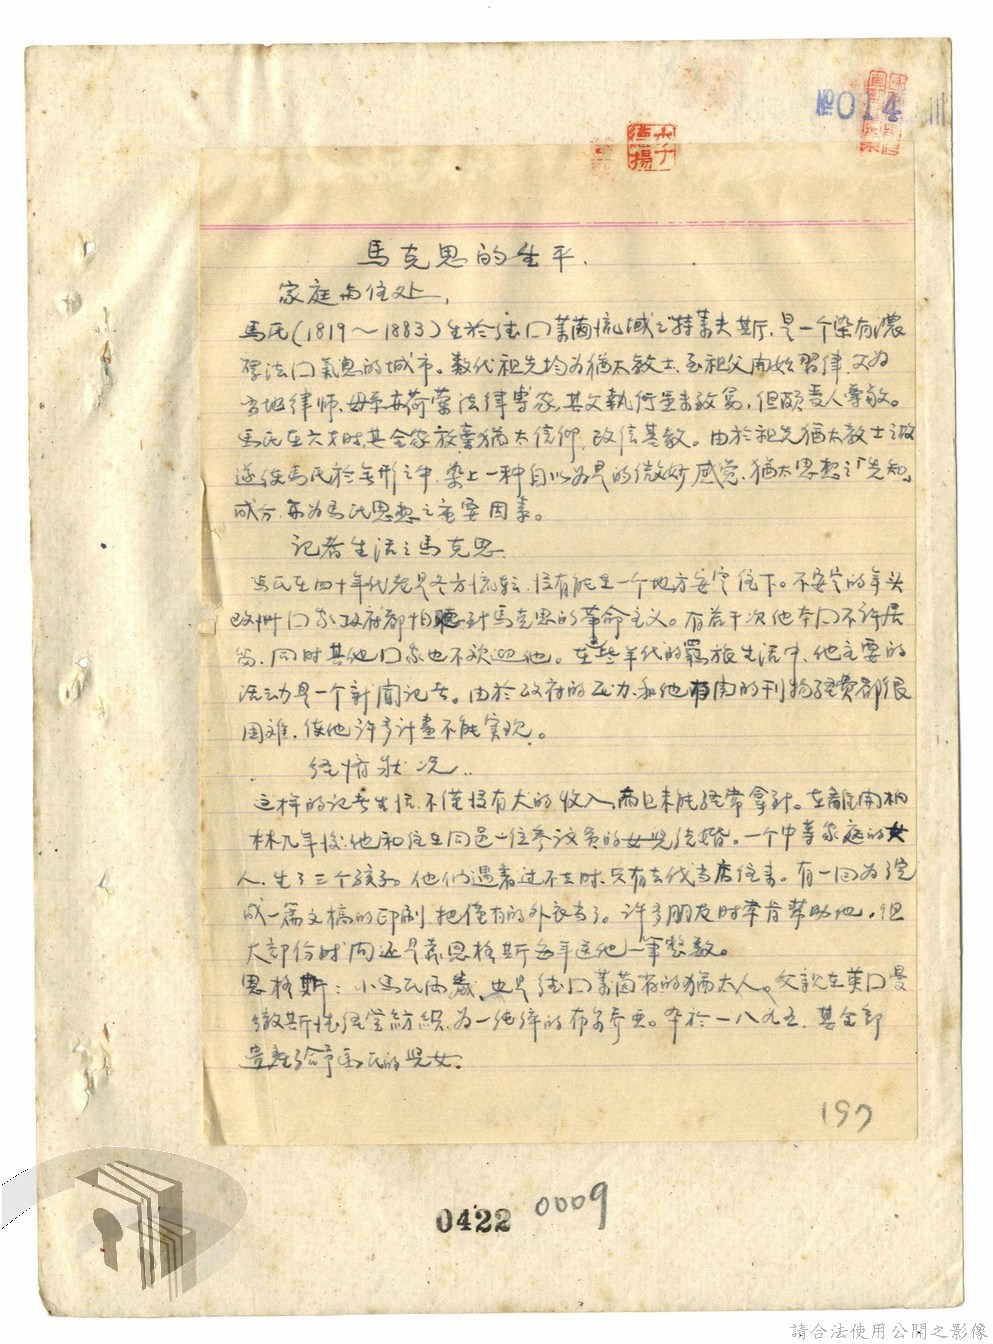 №014
馬克思的生平.
家庭与住处,
馬氏(1819～1883)生於德囗萊茵流域之特萊夫斯,是一个染有濃
厚法囗氣息的城市。数代祖先均为猶太教士,至祖父開始習律,父为
当地律师,母系荷蘭法律專家,其父執行業務,但頗受人尊敬。
馬氏在六才时,其全家放棄猶太信仰,改信基教。由於祖先猶太教士之故
遂使馬氏於無形之中,染上一种自以为是的微妙感觉,猶太思想之「先知」
成分,亦为馬氏思想之重要因素。
記者生活之馬克思
馬氏在四十年代老是各方流転,没有能在一个地方安定住下。不安定的年头
欧洲囗家政府都怕聽到馬克思的革命主义。有若干次他本囗不许居
留,同时其他囗家也不欢迎他。在这些年代的羈旅生活中,他主要的
活动是一个新聞记者。由於政府的压力,和他有関的刊物経費都很
困难,使他许多计畫不能实现。
経情狀况..
这样的记者生活,不僅没有大的收入,而且未能経常拿到。在離開柏
林几年後,他和住在同邑一位参议员的女兒结婚。一个中等家庭的女
人,生了三个孩子。他们遇着过不去时,只有去找当店住来。有一回为了完
成一篇文稿的印刷,把僅有的外衣当了。许多朋友时常肯幫助他,但
大部份时间还是靠恩格斯每年送他一筆整数。
恩格斯:小馬氏两歲,也是德囗萊茵省的猶太人。父親在英囗曼
徹斯德経営紡織,为一純粹的布尔乔亚。卒於一八九五,其全部
遺產给予馬氏的兒女.
197
0422
0009
請合法使用公開之影像